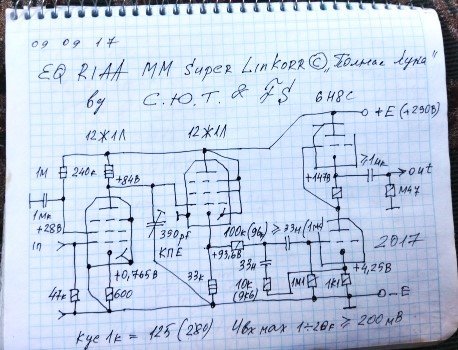 09 09 17
EQ RIAA MM Super Linkorr © "Полная Лужа"
by С.Ю.Т. & FS
6Н8С
12Ж1Л 12Ж1Л +E (+290В)
1М 240к +84В +147В ≥1мк out
1мк 390pf КПЕ 100к (96к) ≥33н (1мк) М47
+28В +93,6В 2017
In +0,765В 33н +4,25В
47к 600 33к 10к (9к6) 1М1 1К1 -E
Кус 1к = 125 (280) Uвх max 1÷20к ≥ 200мВ